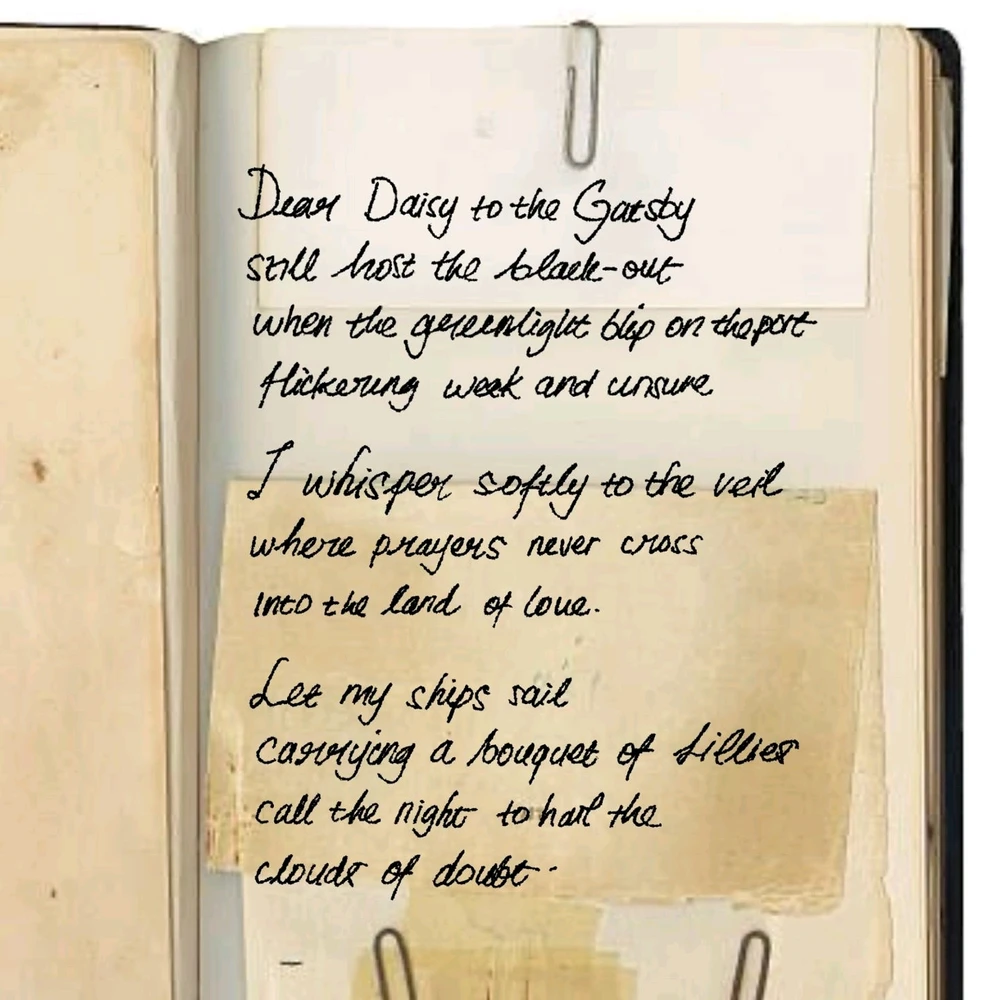 Dear Daisy to the Gatsby
still host the black-out
when the greenlight blip on the port
flickering weak and unsure
I whisper softly to the veil
where prayers never cross
into the land of love.
Let my ships sail
carrying a bouquet of Lillies
call the night to hail the
clouds of doubt.